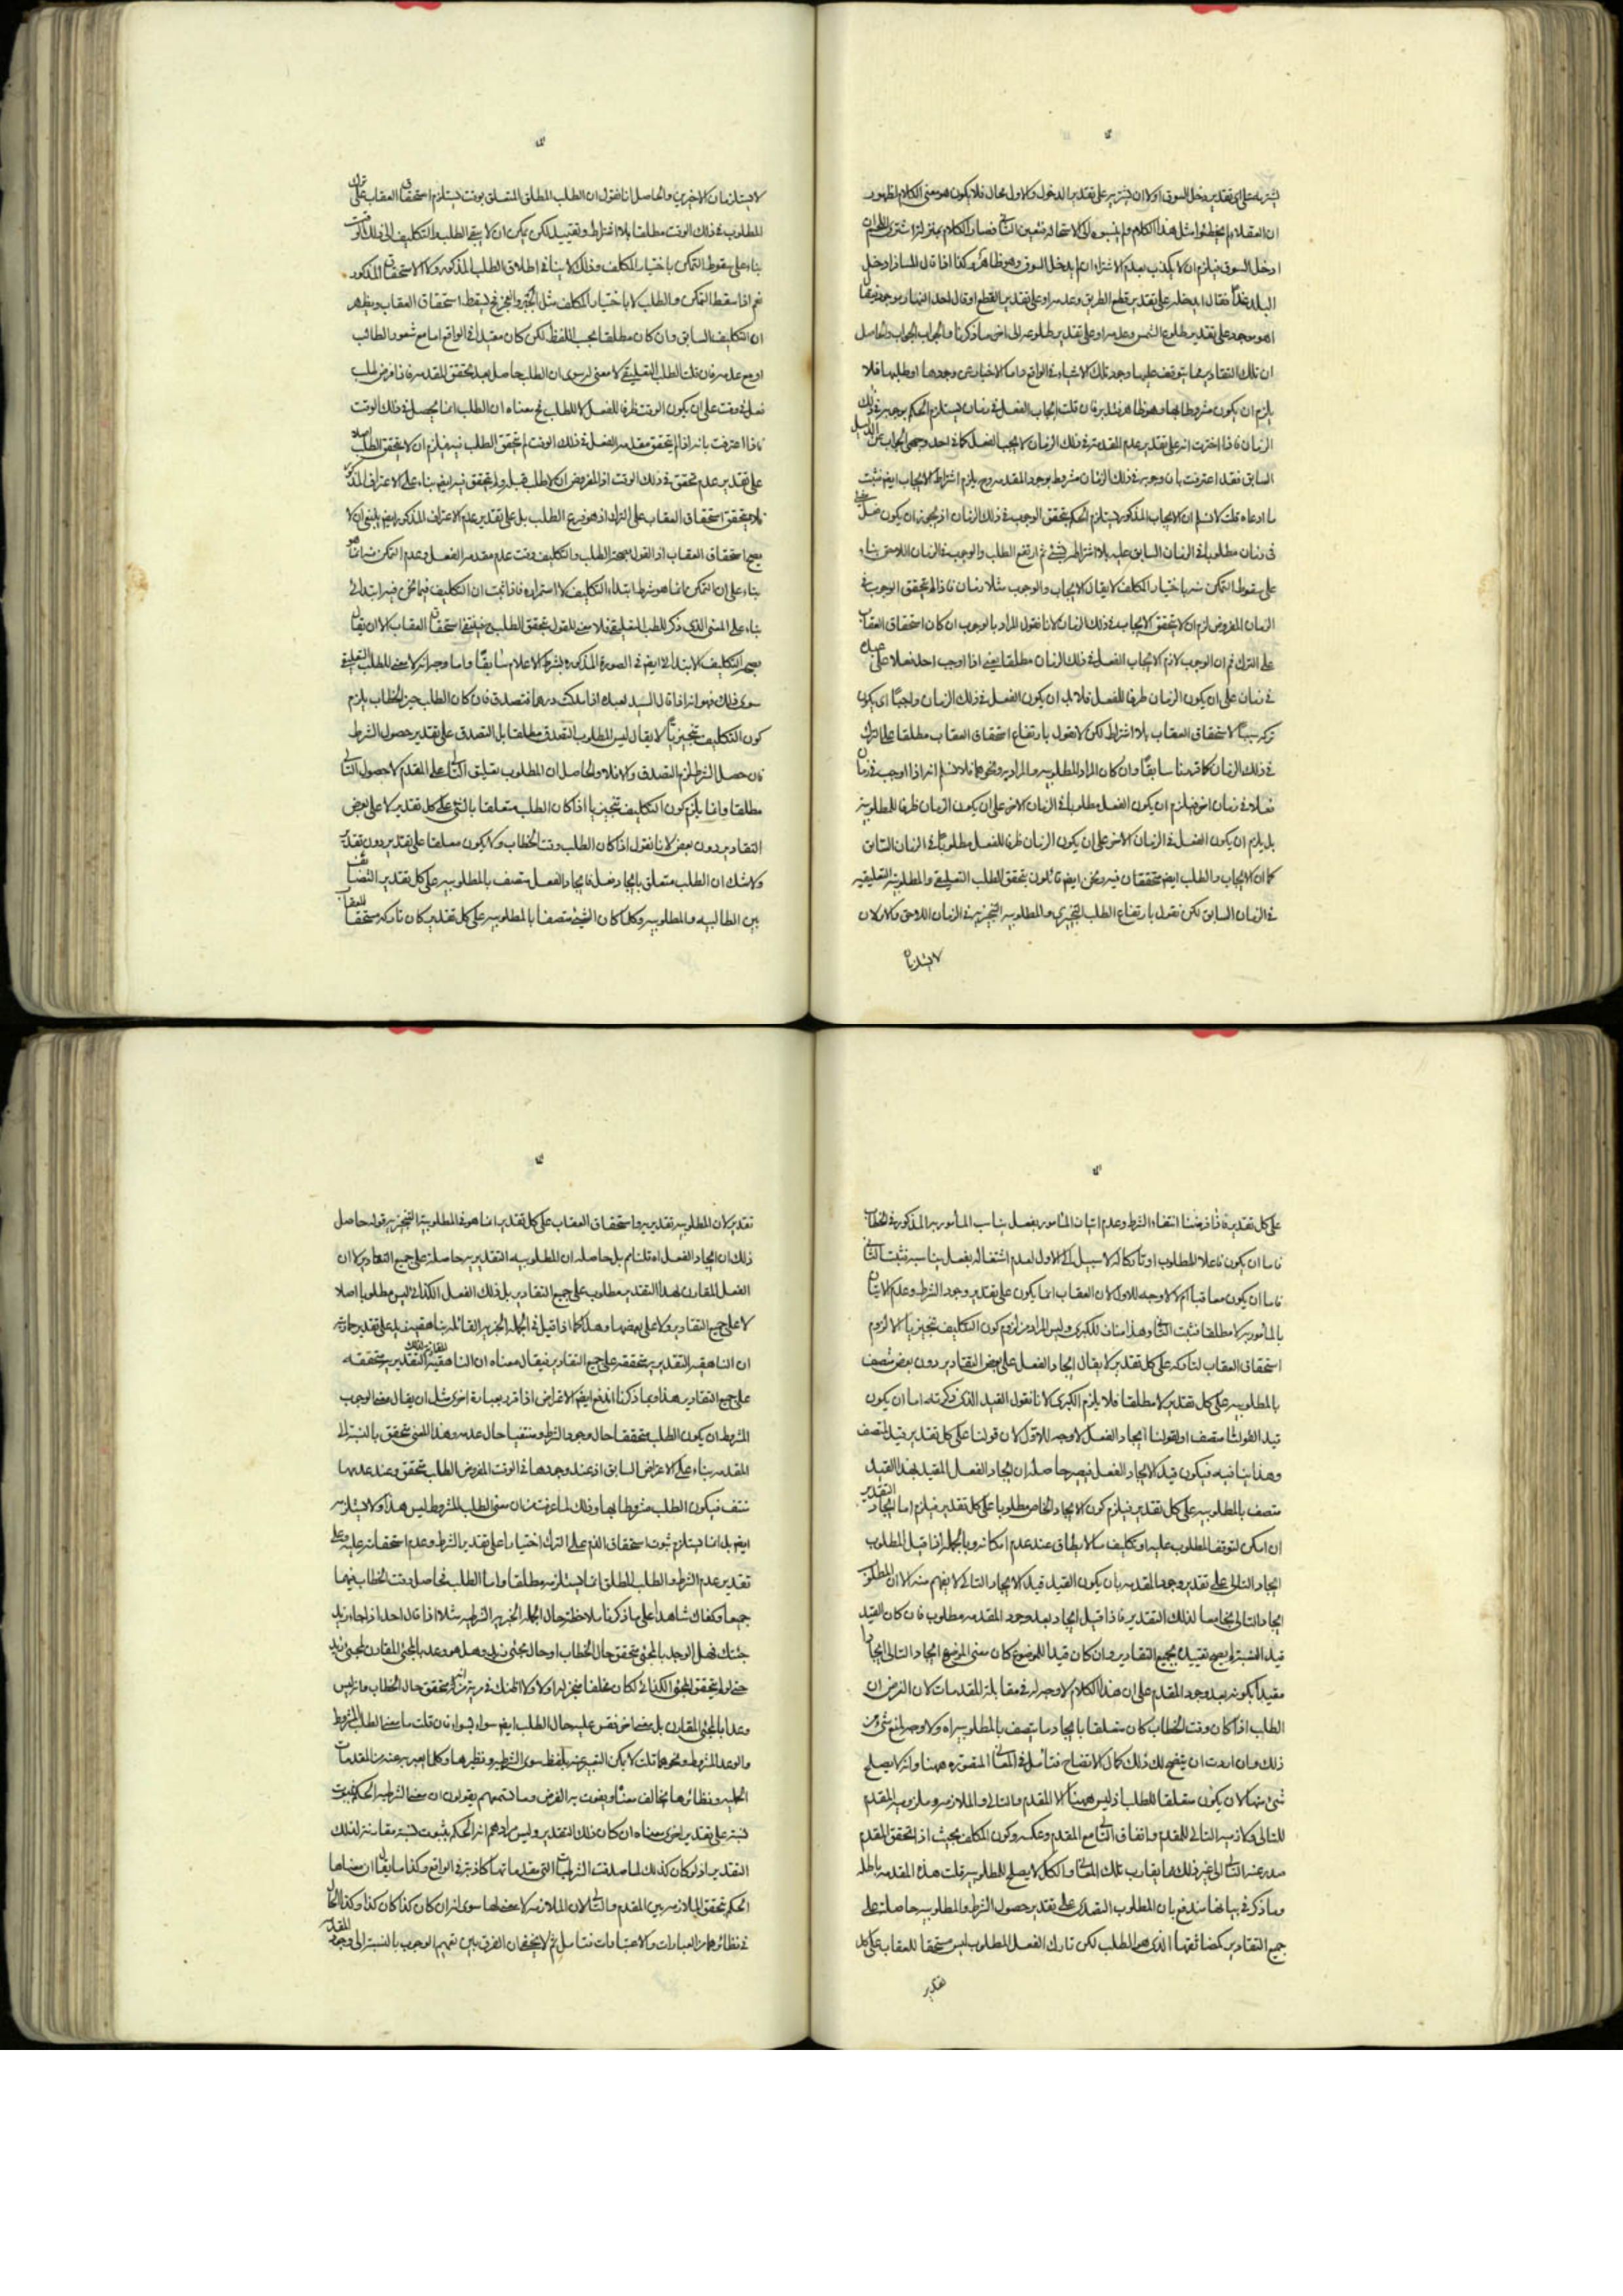 يشتريه على اى تقدير دخل السوق اولا ان يشتريه على تقدير الدخول والاول محال فلا يكون هو معنى الكلام لظهور
ان العقلاء لم يخطئوا مثل هذا الكلام ولم ينسبوه الى الاستحالة فتعين الثانى فصار الكلام بمنزلة اشترى اللحم ان
ادخل السوق فيلزم ان لا يكذب بعدم الاشتراء ان لم يدخل السوق وهو ظاهر وكذا اذا قال المسافر ادخل
البلد غدا فقال ايدخله على تقدير قطع الطريق وعدمه او على تقدير القطع او قال احد النهار موجود فيقال
اهو موجود على تقدير طلوع الشمس وعدمه او على تقدير طلوعه الى اخر ما ذكرنا والجواب الجواب والحاصل
ان تلك التقادير مما يتوقف عليها وجود تلك الاشياء فى الواقع واما الاخبار عن وجودها او طلبها فلا
يلزم ان يكون مشروطا بها وهو ظاهر فتدبر فان قلت ايجاب الفعل فى زمان يستلزم الحكم بوجوبه فى ذلك
الزمان فاذا اخترت انه على تقدير عدم المقدمة فى ذلك الزمان لا يجب الفعل كما فى احد وجهى الجواب عن الدليل
السابق فقد اعترفت بان وجوبه فى ذلك الزمان مشروط بوجود المقدمة وح يلزم اشتراط الايجاب ايضا فثبت
ما ادعاه قلت لا نسلم ان الايجاب المذكور يستلزم الحكم بتحقق الوجوب فى ذلك الزمان اذ يجوز ان يكون فعل
فى زمان مطلوبا فى الزمان السابق عليه بلا اشتراطه بشئ ثم ارتفع الطلب والوجوب فى الزمان اللاحق بناء
على سقوط التمكن منه باختيار المكلف لا يقال الايجاب والوجوب مثلا زمان فاذا لم يتحقق الوجوب فى
الزمان المفروض لزم ان لا يتحقق الايجاب فى ذلك الزمان لانا نقول المراد بالوجوب ان كان استحقاق العقاب
على الترك ثم ان الوجوب لازم لايجاب الفعل فى ذلك الزمان مطلقا يعنى اذا اوجب احد فعلا على عبده
فى زمان على ان يكون الزمان ظرفا للفعل فلا بد ان يكون الفعل فى ذلك الزمان واجبا اى يكون
تركه سببا لاستحقاق العقاب بلا اشتراط لكن لا نقول بارتفاع استحقاق العقاب مطلقا على الترك
فى ذلك الزمان كما قدمنا سابقا وان كان المراد المطلوبيه والمراديه ونحوهما فلا نسلم انه اذا اوجب فى زمان
فعلا فى زمان اخر فيلزم ان يكون الفعل مطلوبا فى الزمان الاخر على ان يكون الزمان ظرفا للمطلوبيه
بل يلزم ان يكون الفعل فى الزمان الاخر على ان يكون الزمان ظرفا للفعل مطلوبا فى الزمان السابق
كما ان الايجاب والطلب ايضا متحققان فيه ونحن ايضا قائلون بتحقق الطلب التعليقى والمطلوبية التعليقيه
فى الزمان السابق لكن نقول بارتفاع الطلب التنجيزى والمطلوبيه التنجيزيه فى الزمان اللاحق والاولان
لا يستلزمان
لا يستلزمان الاخيرين والحاصل انا نقول ان الطلب المطلق المتعلق بوقت يستلزم استحقاق العقاب على ترك
المطلوب فى ذلك الوقت مطلقا بلا اشتراط وتقييد لكن يمكن ان لا يبقى الطلب والتكليف الى ذلك الوقت
بناء على سقوط التمكن باختيار المكلف وذلك لا ينافى اطلاق الطلب المذكور وكذا الاستحقاق المذكور
نعم اذا سقط التمكن والطلب لا باختيار المكلف مثل الجبر والعجز فح يسقط استحقاق العقاب ويظهر
ان التكليف السابق وان كان مطلقا بحسب اللفظ لكن كان مقيدا فى الواقع اما مع شعور الطالب
او مع عدمه فان قلت الطلب التعليقى لا معنى له سوى ان الطلب حاصل بعد تحقق المقدمه فاذا فرض طلب
فعل فى وقت على ان يكون الوقت ظرفا للفعل لا للطلب فح معناه ان الطلب انما يحصل فى ذلك الوقت
فاذا اعترفت بانه اذا لم يتحقق مقدمه الفعل فى ذلك الوقت لم يتحقق الطلب فيه فيلزم ان لا يتحقق الطلب اصلا
على تقدير عدم تحققه فى ذلك الوقت اذ المفروض ان لا طلب قبله ولم يتحقق فيه ايضا بناء على الاعتراف المذكور
فلا يتحقق استحقاق العقاب على الترك اذ هو فرع الطلب بل على تقدير عدم الاعتراف المذكور ايضا ينبغى ان لا
يصح استحقاق العقاب اذ القول بصحة الطلب والتكليف وقت عدم مقدمه الفعل وعدم التمكن منه انما هو
بناء على ان التمكن انما هو شرط ابتداء التكليف لا استمراره فاذا ثبت ان التكليف فيما نحن فيه ابتدائى
بناء على المعنى الذى ذكر للطلب التعليقى فلا معنى للقول بتحقق الطلب فينتفى استحقاق العقاب الا ان يقال
يصح التكليف الابتدائى ايضا فى الصورة المذكوره بشرط الاعلام سابقا واما وجه انه لا معنى للطلب التعليقى
سوى ذلك فهو انه اذا قال السيد لعبده اذا ملكت درهما فتصدق فان كان الطلب حين الخطاب يلزم
كون التكليف تنجيزيا لا يقال ليس المطلوب التصدق مطلقا بل التصدق على تقدير حصول الشرط
فان حصل الشرط لزم التصدق والا فلا والحاصل ان المطلوب تعليق التالى على المقدم لا حصول التالى
مطلقا وانما يلزم كون التكليف تنجيزيا اذا كان الطلب متعلقا بالشئ على كل تقدير لا على بعض
التقادير دون بعض لانا نقول اذا كان الطلب وقت الخطاب ولا يكون معلقا على تقدير دون تقدير
ولا شك ان الطلب متعلق بايجاد فعل فايجاد الفعل متصف بالمطلوبيه على كل تقدير التضايف
بين الطالبيه والمطلوبيه وكلما كان الشئ متصفا بالمطلوبيه على كل تقدير كان تاركه مستحقا للعقاب
على كل تقدير فاذا فرضنا انتفاء الشرط وعدم اتيان المامور بفعل يناسب المامور به المذكور فى الخطاب
فاما ان يكون فاعلا للمطلوب او تاركا له لا سبيل الى الاول لعدم اشتغاله بفعل يناسبه فثبت الثانى
فاما ان يكون معاقبا ام لا لا وجه للاول لان العقاب انما يكون على تقدير وجود الشرط وعدم الاتيان
بالمامور به لا مطلقا فثبت الثانى وهذا مناف للكبرى وليس المراد من لزوم كون التكليف تنجيزيا الا لزوم
استحقاق العقاب لتاركه على كل تقدير لا يقال ايجاد الفعل على بعض التقادير دون بعض متصف
بالمطلوبيه على كل تقدير لا مطلقا فلا يلزم الكبرى لانا نقول القيد الذى ذكرته اما ان يكون
قيد القولنا متصف او لقولنا ايجاد الفعل لا وجه للاول لان قولنا على كل تقدير قيد لمتصف
وهذا ينافيه فيكون قيدا لايجاد الفعل فيصير حاصله ان ايجاد الفعل المقيد بهذا القيد
متصف بالمطلوبيه على كل تقدير فيلزم كون الايجاد الخاص مطلوبا على كل تقدير فيلزم اما ايجاد التقدير
ان امكن لتوقف المطلوب عليه او تكليف ما لا يطاق عند عدم امكانه وبالجمله اذا قيل المطلوب
ايجاد التالى على تقدير وجود المقدمه بان يكون القيد قيدا لايجاد التالى لا يفهم منه الا ان المطلوب
ايجاد التالى مجامعا لذلك التقدير فاذا قيل ايجاد بعد وجود المقدمه مطلوب فان كان القيد
قيد النسبة لم يصح تقييده بجميع التقادير وان كان قيدا للموضوع كان معنى الموضوع ايجاد التالى ايجادا
مقيدا بكونه بعد وجود المقدم على ان هذا الكلام لا وجه له فى مقابلة المقدمات لان الفرض ان
الطلب اذا كان وقت الخطاب كان متعلقا بايجاد ما يتصف بالمطلوبيه اه ولا وجه لمنع شئ من
ذلك وان اردت ان يتضح لك ذلك كمال الاتضاح فتامل فى المعانى المتصوره ههنا وانه لا يصلح
شئ منها لان يكون متعلقا للطلب اذ ليس ههنا الا المقدم والتالى والملازمه وملزوميه المقدم
للتالى ولازميه التالى للمقدم واتفاق التالى مع المقدم وعكسه وكون المكلف بحيث اذا تحقق المقدم
صدر عنه التالى الى غير ذلك مما يقارب تلك المعانى والكل لا يصلح للمطلوبيه قلت هذه المقدمه باطله
وما ذكر فى بيانها يندفع بان المطلوب التقديرى على تقدير حصول الشرط والمطلوبيه حاصلة على
جميع التقادير كمضائفها الذى هو الطلب لكن تارك الفعل المطلوب ليس مستحقا للعقاب على كل
تقدير
تقدير لان المطلوبيه تقديريه واستحقاق العقاب على كل تقدير انما هو فى المطلوبية التنجيزيه قوله حاصل
ذلك ان ايجاد الفعل اه قلنا نعم بل حاصله ان المطلوبيه التقديريه حاصلة على جميع التقادير لا ان
الفعل المقارن لهذا التقدير مطلوب على جميع التقادير بل ذلك الفعل الكذائى ليس مطلوبا اصلا
لا على جميع التقادير ولا على بعضها وهذا كما اذا قيل فى الجمله الخبريه القائله زيد ناهق على تقدير حماريته
ان الناهقيه التقديريه متحققة على جميع التقادير فيقال معناه ان الناهقيه المقارنة لذلك التقدير متحققه
على جميع التقادير هذا وبما ذكرنا اندفع ايضا الاعتراض اذا قرر بعبارة اخرى مثل ان يقال معنى الوجوب
المشروط ان يكون الطلب متحققا حال وجود الشرط ومنتفيا حال عدمه وهذا المعنى متحقق بالنسبة الى
المقدمه بناء على الاعتراض السابق اذ عند وجودها فى الوقت المفروض الطلب متحقق وعند عدمها
منتف فيكون الطلب مشروطا بها وذلك لما عرفت من ان معنى الطلب المشروط ليس هذا ولا يستلزمه
ايضا بل انما يستلزم ثبوت استحقاق الذم على الترك اختيارا على تقدير الشرط وعدم استحقاقه عليه على
تقدير عدم الشرط والطلب المطلق انما يستلزمه مطلقا واما الطلب فحاصل وقت الخطاب فيهما
جميعا وكفاك شاهدا على ما ذكرنا ملاحظة حال الجمله الخبريه الشرطيه مثلا اذا قال احد اذا جاء زيد
جئتك فهل الوعد بالمجئ متحقق حال الخطاب او حال مجئ زيد وهل هو وعد بالمجئ المقارن لمجئ زيد
حتى لو لم يتحقق المجئ الكذائى لكان مخلفا منجزا له اولا ولا اظنك فى مرية من انه متحقق حال الخطاب وانه ليس
وعدا بالمجئ المقارن بل بمعنى اخر فقس عليه حال الطلب ايضا سواء بسواء فان قلت ما معنى الطلب المشروط
والوعد المشروط ونحوهما قلت لا يمكن التعبير عنه بلفظ سوى الشرطيه ونظيرها وكلما يعبر به عنه من المقدمات
الحمليه ونظائرها يخالف معناه ويفوت به الغرض وما تسمعهم يقولون ان معنى الشرطيه الحكم بثبوت
نسبة على تقدير اخرى معناه ان كان ذلك التقدير وليس مرادهم انه الحكم بثبوت نسبة مقارنة لذلك
التقدير اذ لو كان كذلك لما صدقت الشرطيات التى مقدماتها كاذبة فى الواقع وكذا ما يقال ان معناها
الحكم بتحقق الملازمه بين المقدم والتالى لان الملازمه لا معنى لها سوى انه ان كان كذا كان كذا وكذا الحال
فى نظائرها من العبارات والاعتبارات فتامل ثم لا يخفى ان الفرق بين تفهيم الوجوب بالنسبة الى وجود المقدمه